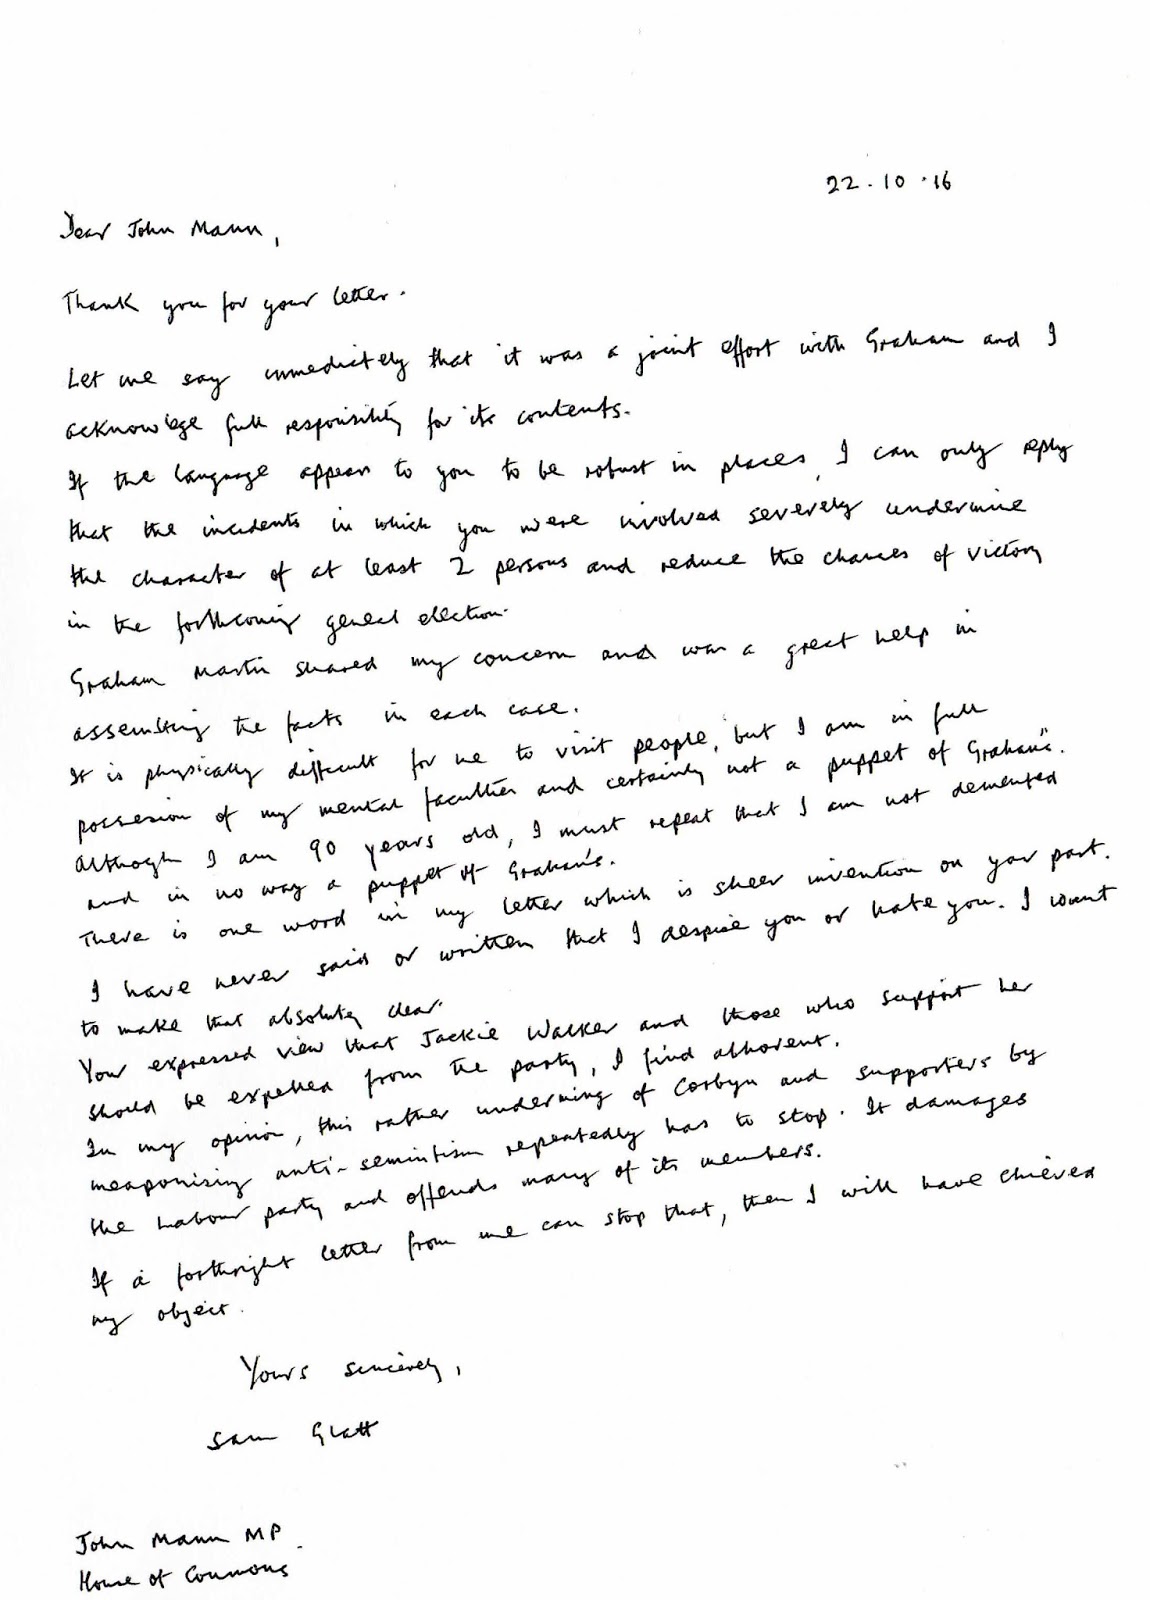 22.10.16
Dear John Mann,
Thank you for your letter.
Let me say immediately that it was a joint effort with Graham and I
acknowlege full responsibility for its contents.
If the language appears to you to be robust in places, I can only reply
that the incidents in which you were involved severely undermine
the character of at least 2 persons and reduce the chances of victory
in the forthcoming general election.
Graham Martin shared my concern and was a great help in
assembling the facts in each case.
It is physically difficult for me to visit people, but I am in full
possession of my mental faculties and certainly not a puppet of Graham's.
Although I am 90 years old, I must repeat that I am not demented
and in no way a puppet of Graham's.
There is one word in my letter which is sheer invention on your part.
I have never said or written that I despise you or hate you. I want
to make that absolutely clear.
Your expressed view that Jackie Walker and those who support her
should be expelled from the party, I find abhorent.
In my opinion, this rather undermining of Corbyn and supporters by
weaponising anti-semintism repeatedly has to stop. It damages
the Labour party and offends many of its members.
If a forthright letter from me can stop that, then I will have chieved
my object.
Yours sincerely,
Sam Glatt
John Mann MP
House of Commons